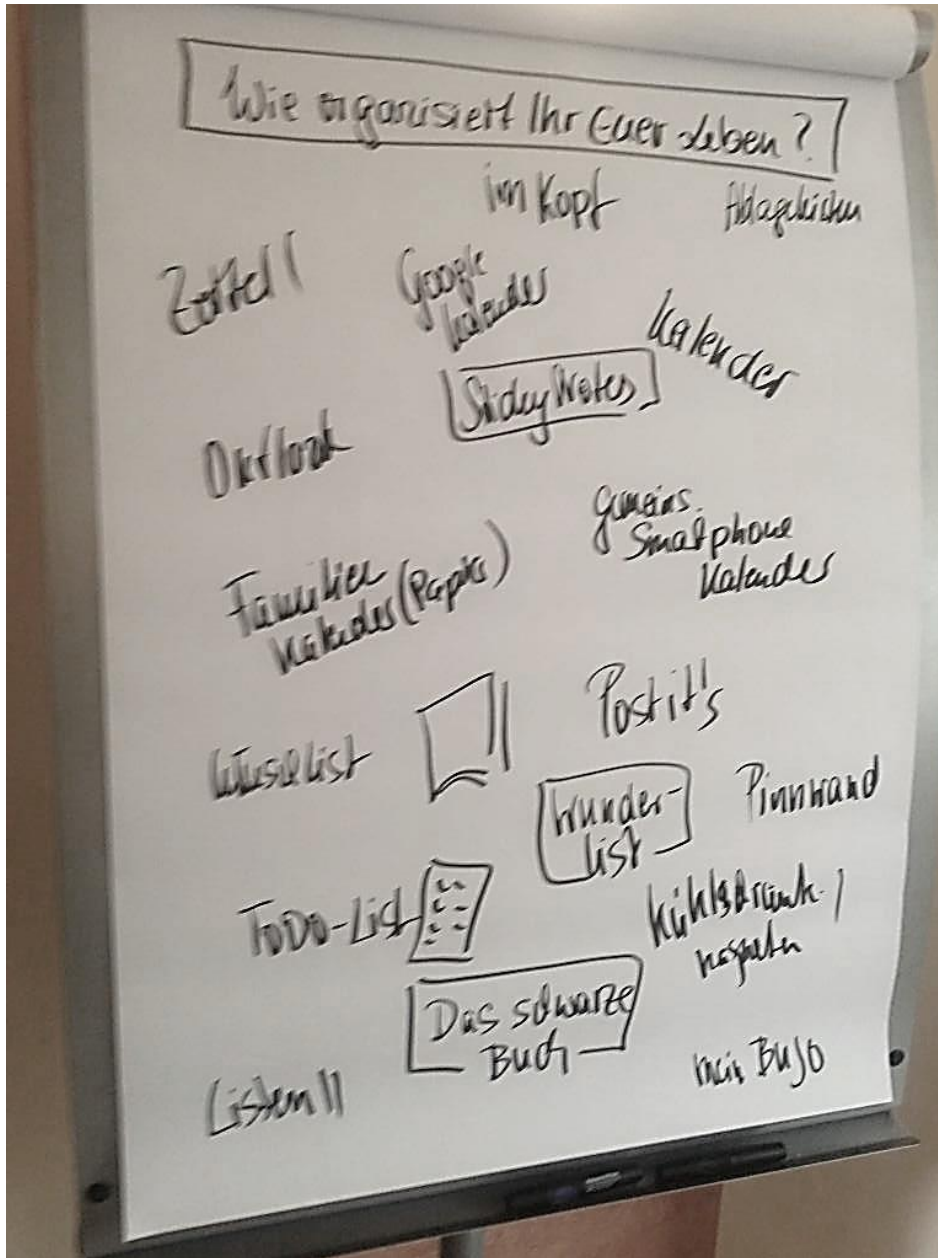 Wie organisiert Ihr Euer Leben?
im Kopf
Ablagekisten
Zettel I
Google
Kalender
Kalender
Sticky Notes
Outlook
gemeins.
Smartphone
Kalender
Familien
Kalender (Papier)
Post it's
Wunder-
list
Pinnwand
ToDo-List
Kühlschrank- I
magneten
Das schwarze
Buch
mein BuJo
Listen II